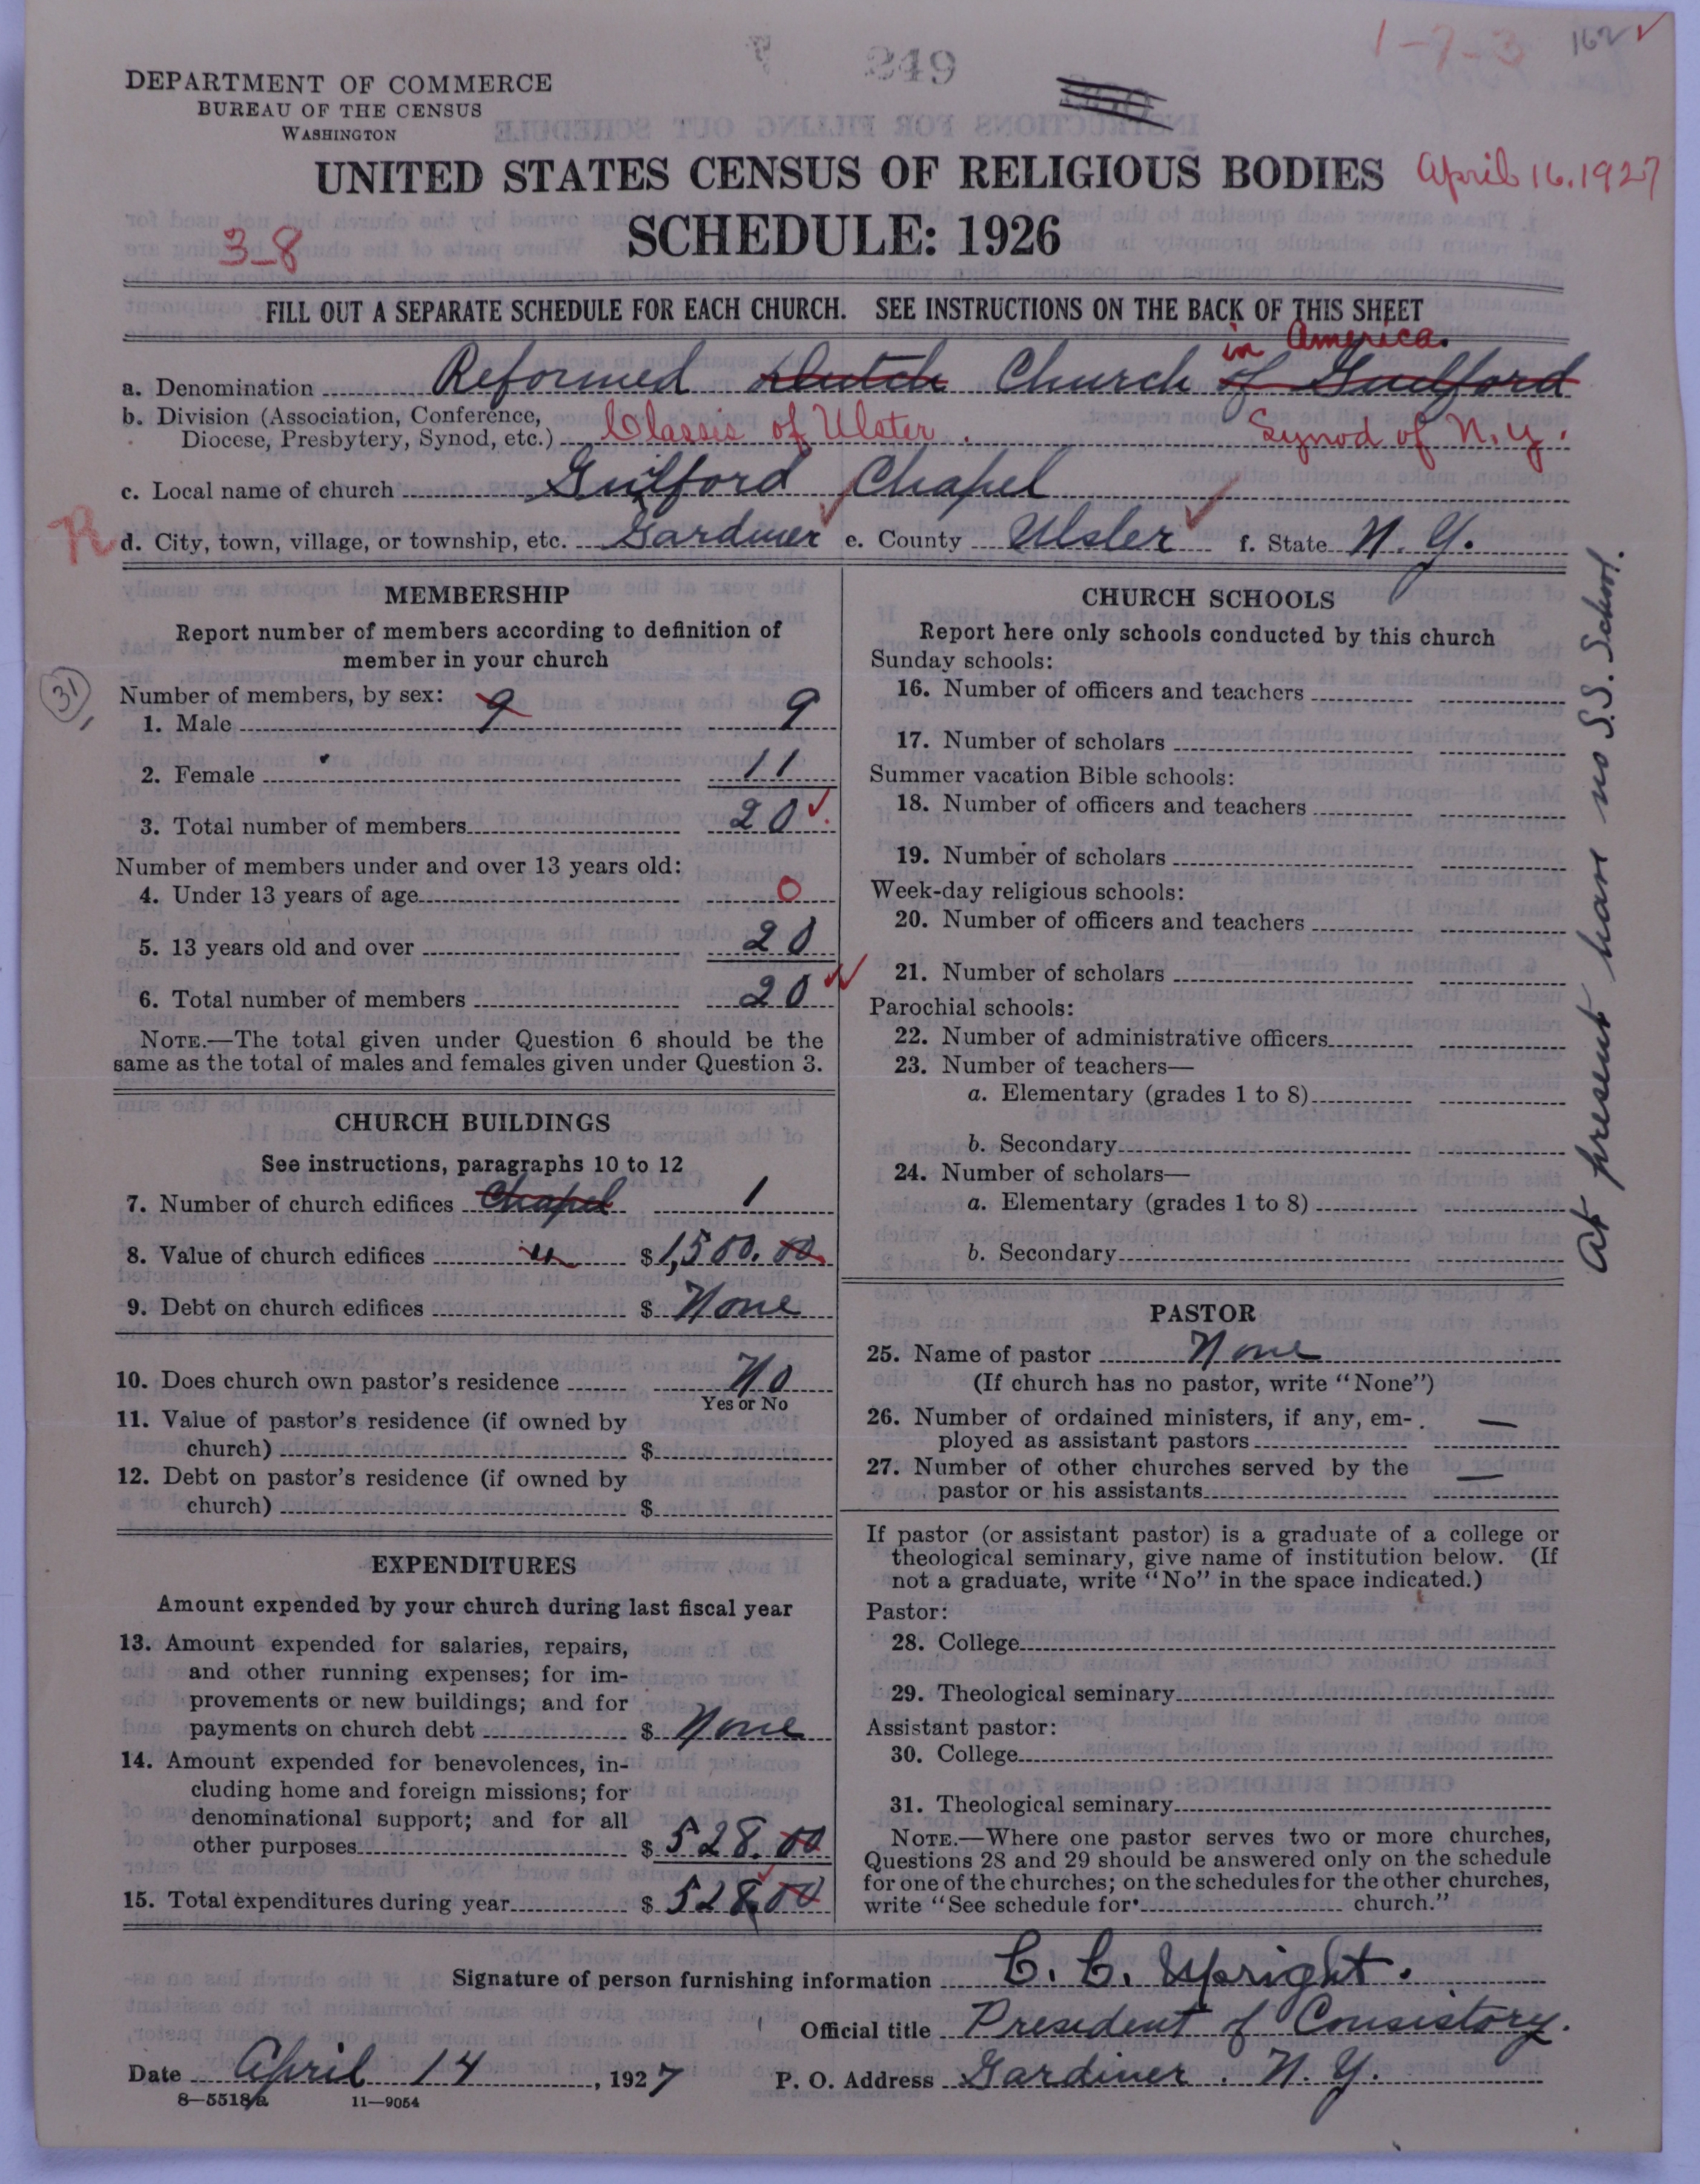 249
1-7-3
162 ✓
DEPARTMENT OF COMMERCE
BUREAU OF THE CENSUS
WASHINGTON
UNITED STATES CENSUS OF RELIGIOUS BODIES
April 16, 1927
SCHEDULE: 1926
3-8
FILL OUT A SEPARATE SCHEDULE FOR EACH CHURCH. SEE INSTRUCTIONS ON THE BACK OF THIS SHEET
in America.
a. Denomination Reformed Dutch Church of Guilford
b. Division (Association, Conference,
Diocese, Presbytery, Synod, etc.) Classis of Ulster. Synod of N.Y.
c. Local name of church Guilford Chapel
R d. City, town, village, or township, etc. Gardiner e. County Ulster f. State N. Y.
MEMBERSHIP
Report number of members according to definition of
member in your church
31
Number of members, by sex:
1. Male 9 9
2. Female 11
3. Total number of members 20 ✓
Number of members under and over 13 years old:
4. Under 13 years of age 0
5. 13 years old and over 20
6. Total number of members 20 ✓
NOTE.—The total given under Question 6 should be the
same as the total of males and females given under Question 3.
CHURCH BUILDINGS
See instructions, paragraphs 10 to 12
7. Number of church edifices Chapel 1
8. Value of church edifices " $1,500.00
9. Debt on church edifices $ None
10. Does church own pastor's residence No
Yes or No
11. Value of pastor's residence (if owned by
church) $
12. Debt on pastor's residence (if owned by
church) $
EXPENDITURES
Amount expended by your church during last fiscal year
13. Amount expended for salaries, repairs,
and other running expenses; for im-
provements or new buildings; and for
payments on church debt $ None
14. Amount expended for benevolences, in-
cluding home and foreign missions; for
denominational support; and for all
other purposes $ 528.00
15. Total expenditures during year $ 528.00
CHURCH SCHOOLS
Report here only schools conducted by this church
Sunday schools:
16. Number of officers and teachers
17. Number of scholars
Summer vacation Bible schools:
18. Number of officers and teachers
19. Number of scholars
Week-day religious schools:
20. Number of officers and teachers
21. Number of scholars
Parochial schools:
22. Number of administrative officers
23. Number of teachers—
a. Elementary (grades 1 to 8)
b. Secondary
24. Number of scholars—
a. Elementary (grades 1 to 8)
b. Secondary
At present have no S.S. School.
PASTOR
25. Name of pastor None
(If church has no pastor, write "None")
26. Number of ordained ministers, if any, em-
ployed as assistant pastors —
27. Number of other churches served by the
pastor or his assistants —
If pastor (or assistant pastor) is a graduate of a college or
theological seminary, give name of institution below. (If
not a graduate, write "No" in the space indicated.)
Pastor:
28. College
29. Theological seminary
Assistant pastor:
30. College
31. Theological seminary
NOTE.—Where one pastor serves two or more churches,
Questions 28 and 29 should be answered only on the schedule
for one of the churches; on the schedules for the other churches,
write "See schedule for church."
Signature of person furnishing information C. C. Upright.
Official title President of Consistory.
Date April 14, 1927 P. O. Address Gardiner. N. Y.
8—5518a 11—9054